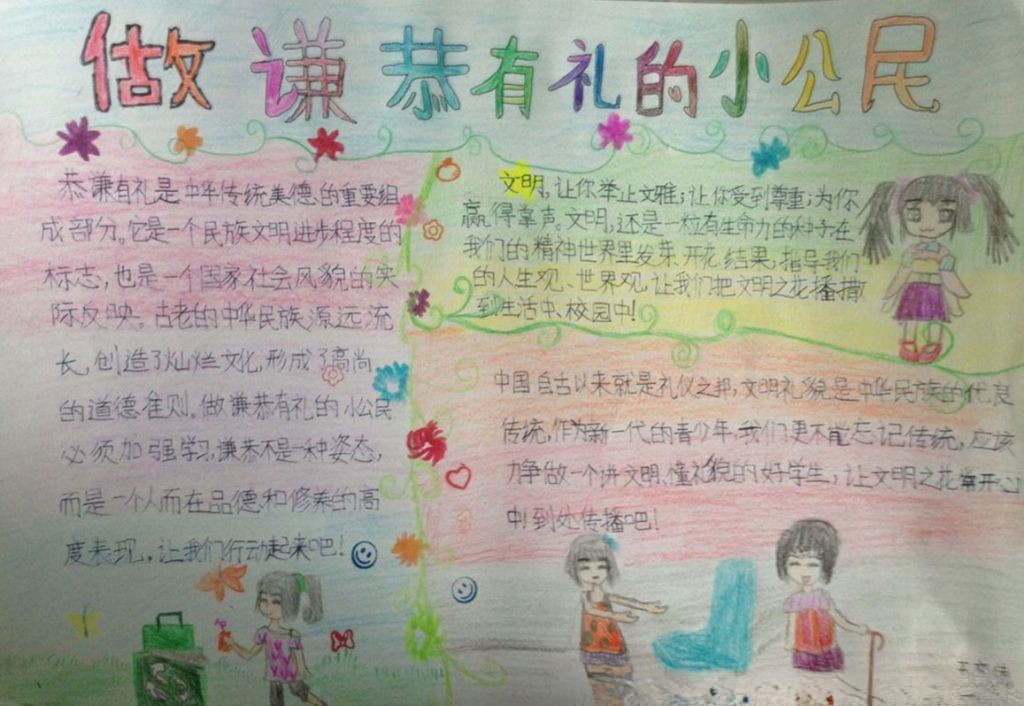 做谦恭有礼的小公民
恭谦有礼是中华传统美德的重要组
成部分。它是一个民族文明进步程度的
标志,也是一个国家社会风貌的实
际反映。古老的中华民族源远流
长,创造了灿烂文化,形成了高尚
的道德准则。做谦恭有礼的小公民
必须加强学习,谦恭不是一种姿态,
而是一个人而在品德和修养的高
度表现,让我们行动起来吧!
文明,让你举止文雅;让你受到尊重;为你
赢得掌声。文明,还是一粒有生命力的种子在
我们的精神世界里发芽、开花、结果,指导我们
的人生观、世界观,让我们把文明之花播撒
到生活中、校园中!
中国自古以来就是礼仪之邦,文明礼貌是中华民族的优良
传统,作为新一代的青少年,我们更不能忘记传统,应该
力争做一个讲文明,懂礼貌的好学生,让文明之花常开心
中!到处传播吧!